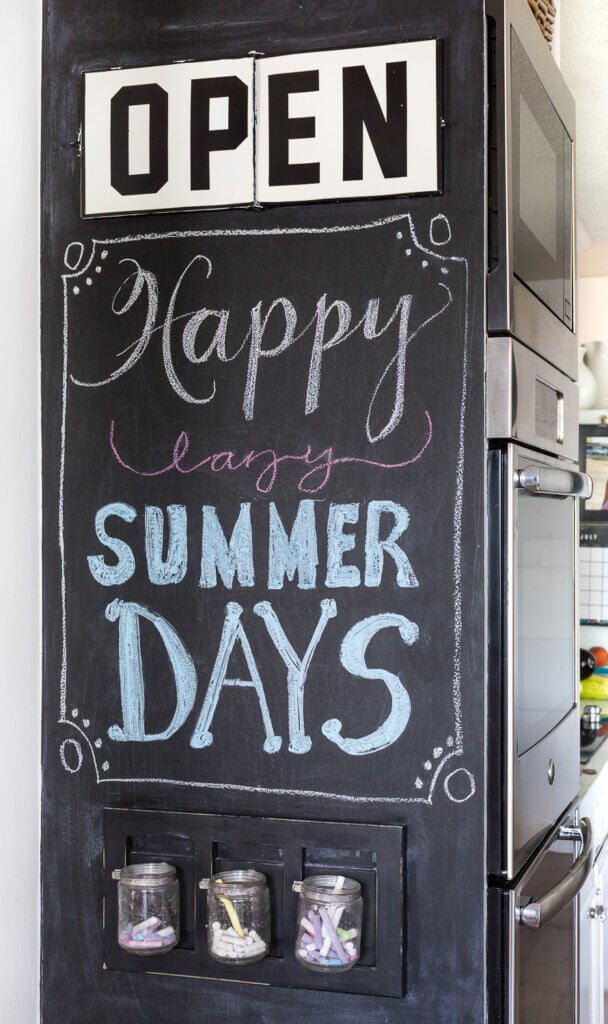 OPEN
Happy
lazy
SUMMER
DAYS
JULY